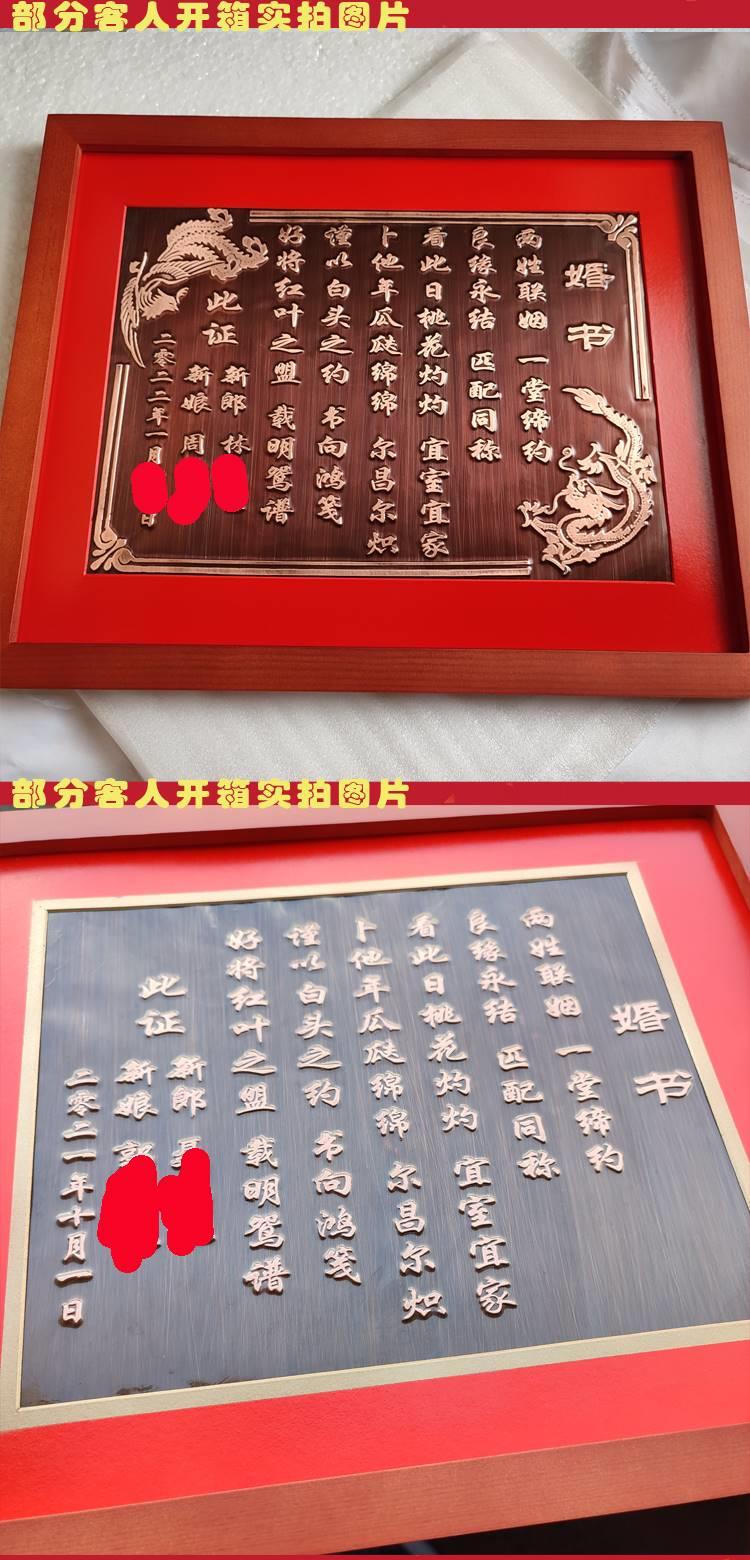 部分客人开箱实拍图片
婚书
两姓联姻 一堂缔约
良缘永结 匹配同称
看此日桃花灼灼 宜室宜家
卜他年瓜瓞绵绵 尔昌尔炽
谨以白头之约 书向鸿笺
好将红叶之盟 载明鸳谱
此证
新郎 林
新娘 周
二零二二年一月 日
部分客人开箱实拍图片
婚书
两姓联姻 一堂缔约
良缘永结 匹配同称
看此日桃花灼灼 宜室宜家
卜他年瓜瓞绵绵 尔昌尔炽
谨以白头之约 书向鸿笺
好将红叶之盟 载明鸳谱
此证
新郎
新娘
二零二一年十月一日